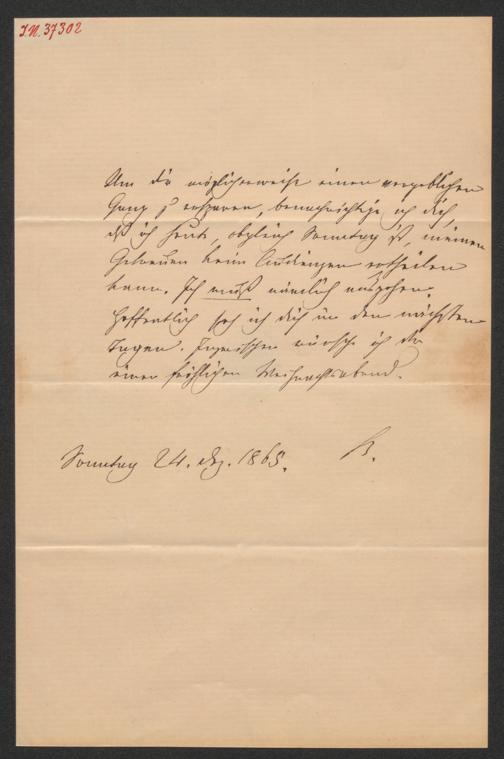 I.N. 37302
Um dir möglicherweise einen vergeblichen
Gang z' ersparen, benachrichtige ich dich,
dß ich heute, obgleich Sonntag ist, meinen
Getreuen keine Audienzen ertheilen
kann. Ich muß nämlich ausgehen.
Hoffentlich seh ich dich in den nächsten
Tagen. Inzwischen wünsche ich dir
einen fröhlichen Weihnachtsabend.
Sonntag 24. Dez. 1865.
B.